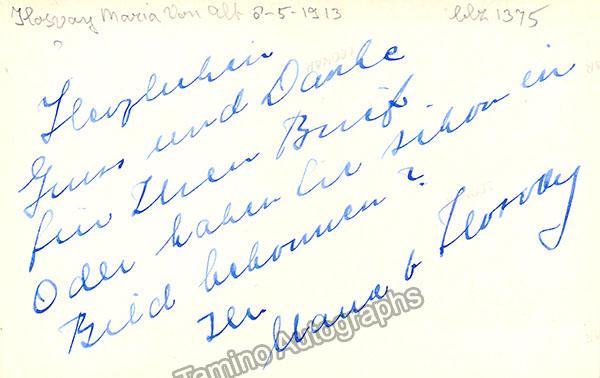 Ilosvay Maria Von Alt 8-5-1913
blz 1375
Herzlichen
Gruss und Danke
für Ihren Brief.
Oder haben Sie schon ein
Bild bekommen?
Ihr
Maria v Ilosvay
Tamino Autographs